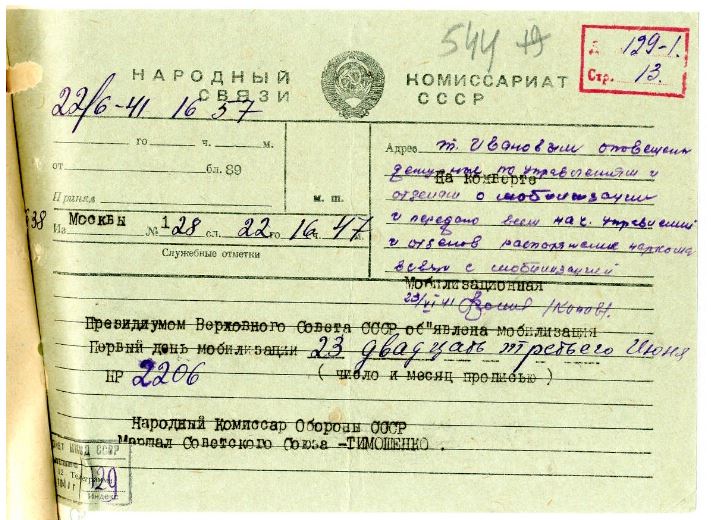 544
129-1.
Стр. 13.
НАРОДНЫЙ КОМИССАРИАТ
СВЯЗИ СССР
22/6-41 16 57
го ч. м.
от бл. 39
Принял м. п.
Из Москвы № 128 сл. 22 го 16 ч. 47 м.
Служебные отметки
Адрес т. Ивановым оповещены
дежурные по управлениям и
На конверте
отделам о мобилизации
и передано всем нач. управлений
и отделов распоряжение наркома
в связи с мобилизацией
Мобилизационная
23/VI 41
Президиумом Верховного Совета СССР об"явлена мобилизация
Первый день мобилизации 23 двадцать третьего Июня
НР 2206 ( число и месяц прописью )
Народный Комиссар Обороны СССР
Маршал Советского Союза -ТИМОШЕНКО .
НКВД СССР
Телеграмма
1941 г
129
Индекс